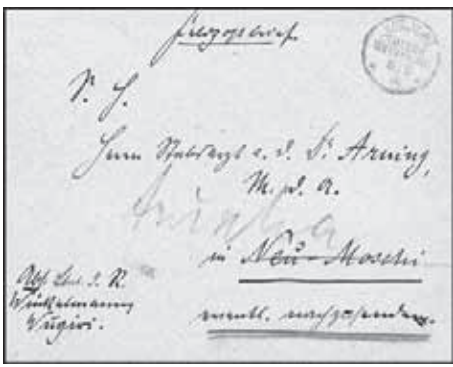 Feldpostbrief.
S. H.
Herrn Stabsarzt a. D. Dr. Arning,
M. d. R.
in Neu-Moschi
eventl. nachzusenden.
Abs. Lt. d. R.
Winkelmann
Wugiri.